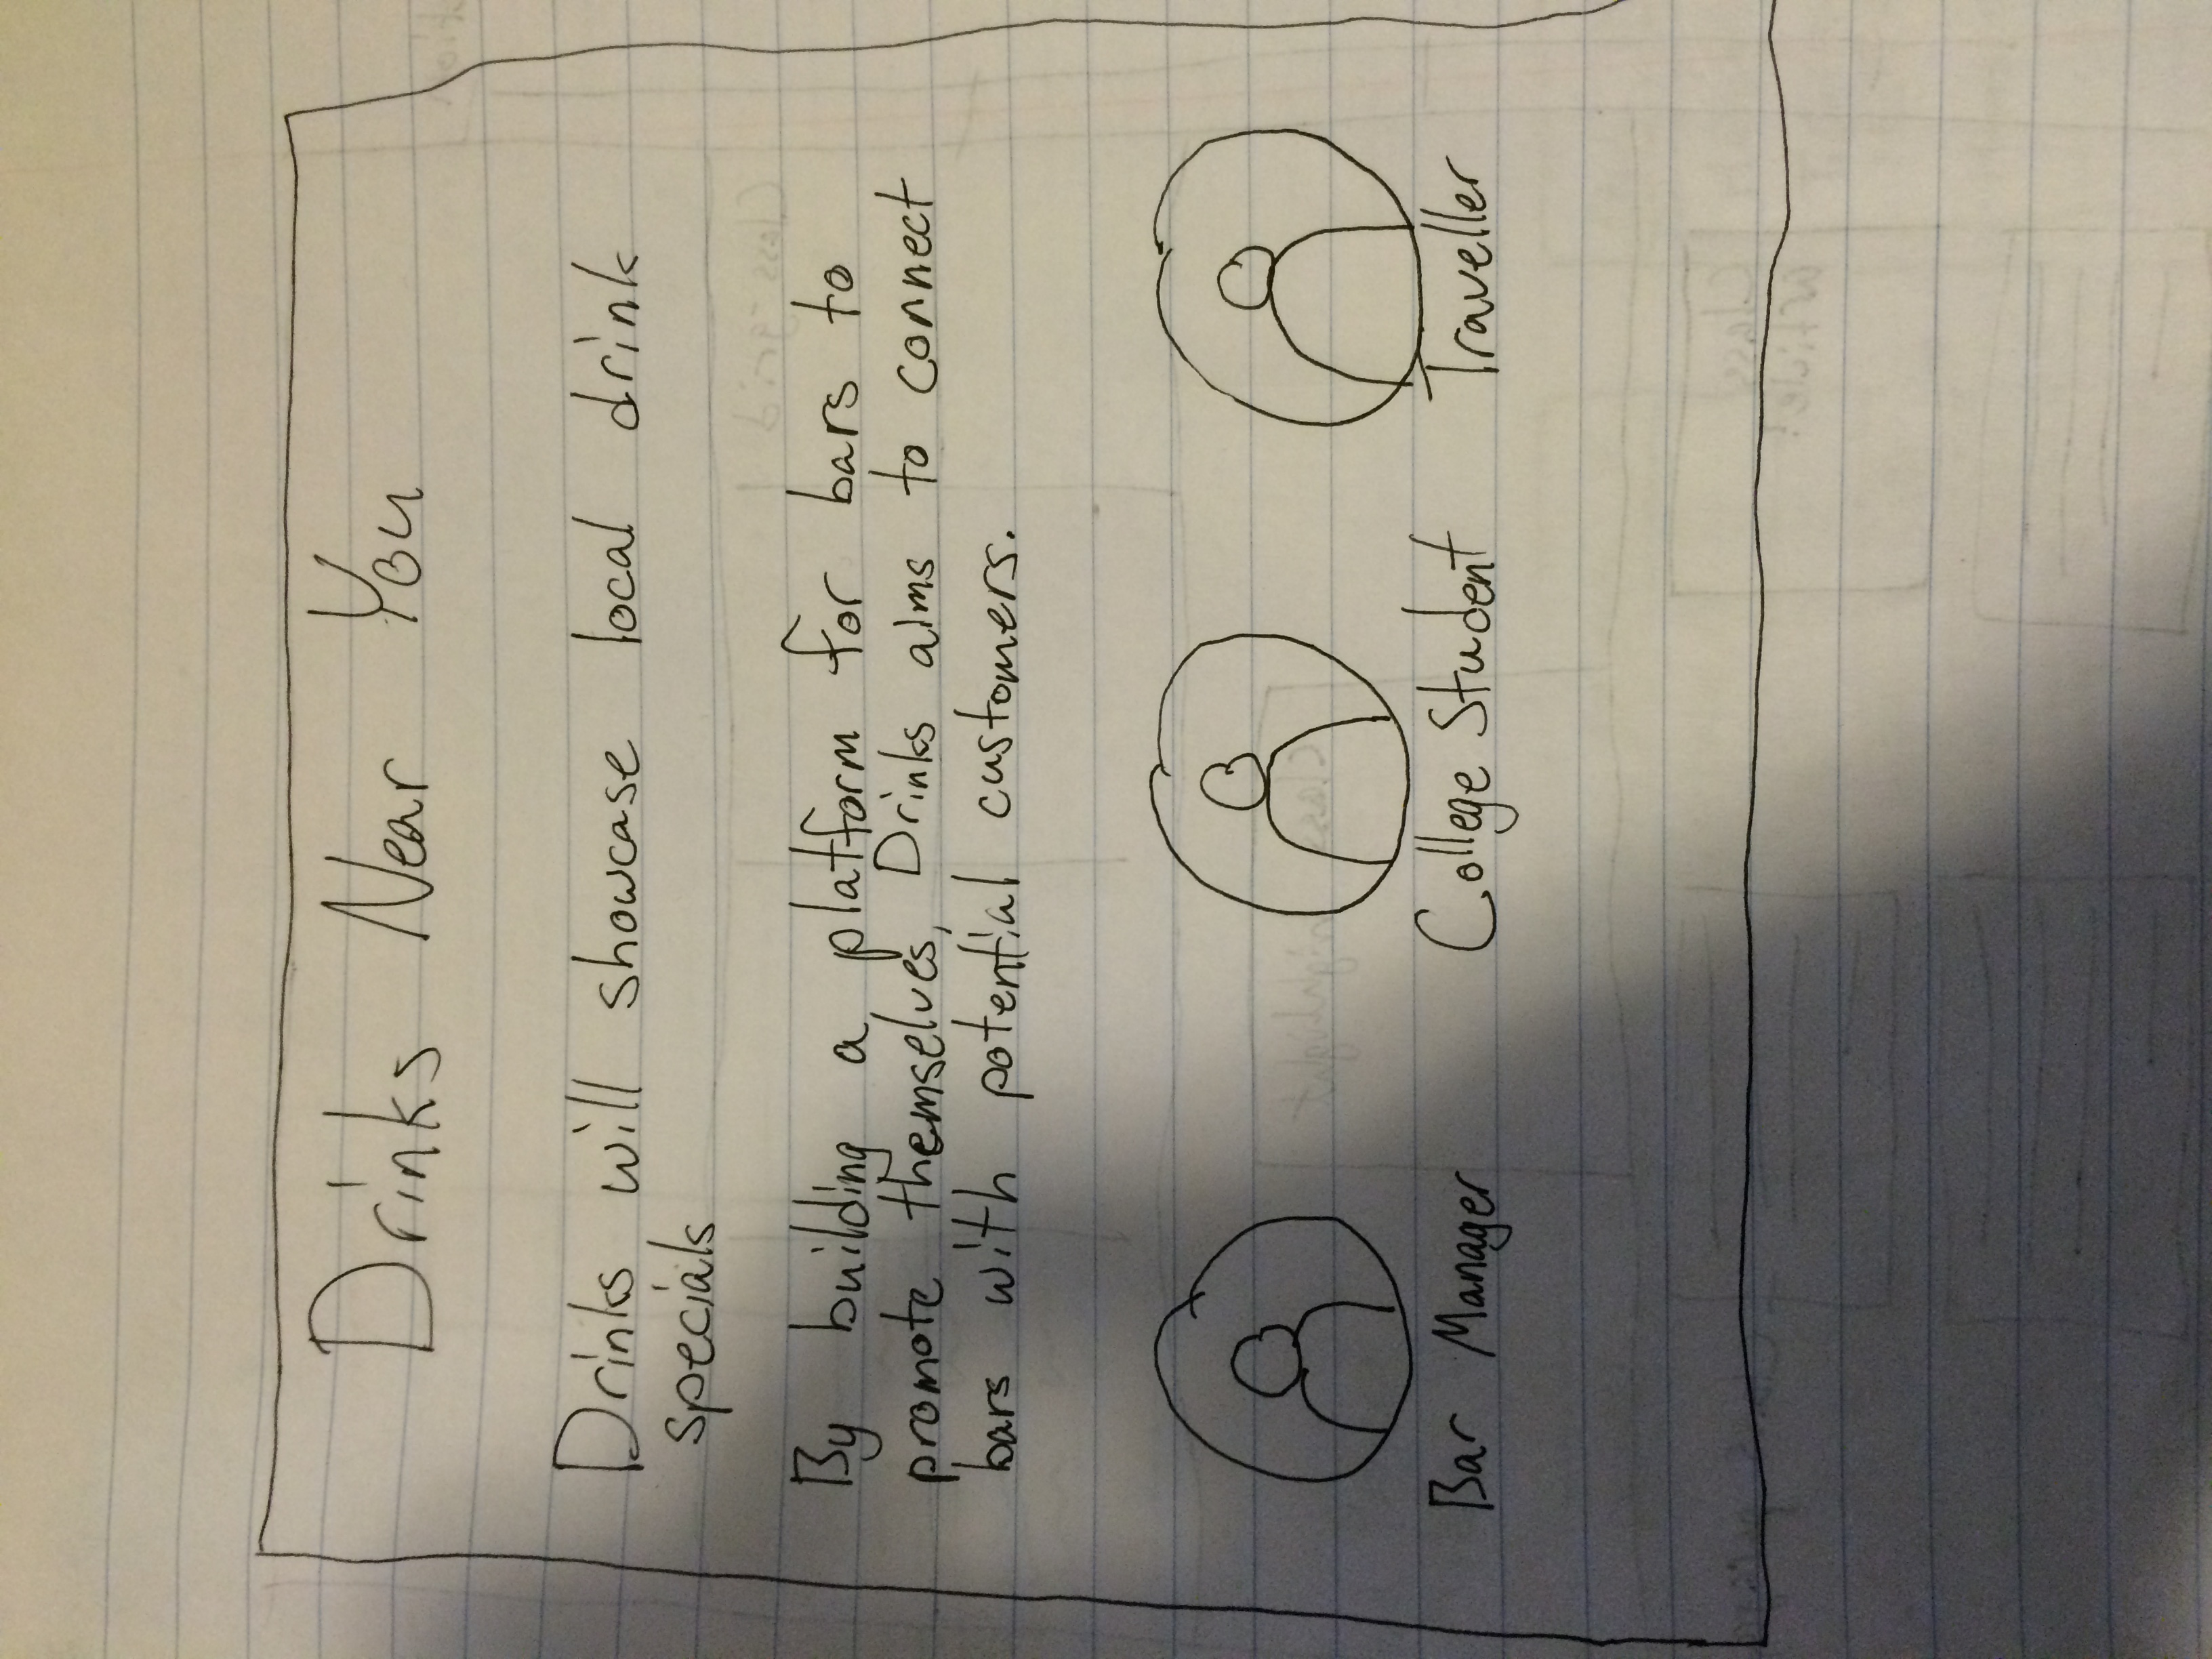 Drinks Near You
Drinks will showcase local drink
specials
By building a platform for bars to
promote themselves, Drinks aims to connect
bars with potential customers.
Bar Manager
College Student
Traveller
Class-grid
Class highlight
Class
article!